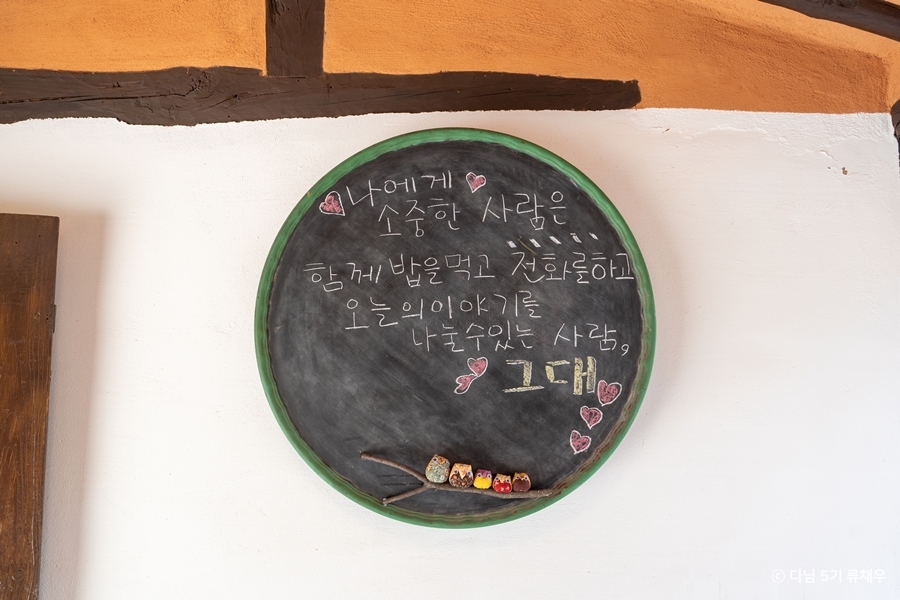 나에게
소중한 사람은
함께 밥을먹고 전화를하고
오늘의이야기를
나눌수있는 사람,
그대
ⓒ 다님 5기 류채우